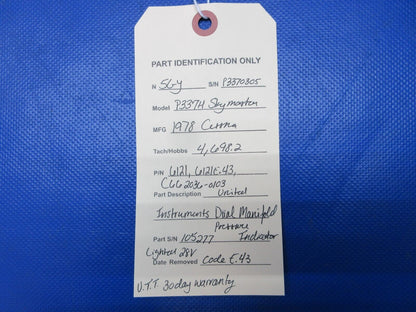 PART IDENTIFICATION ONLY
N 5GY S/N P3370305
Model P337H Skymaster
MFG 1978 Cessna
Tach/Hobbs 4,698.2
P/N 6121, 6121E.43,
C662036-0103
Part Description United
Instruments Dual Manifold
Pressure
Part S/N 105277 Indicator
Lighted 28V
Date Removed Code E.43
U.T.T 30day warranty